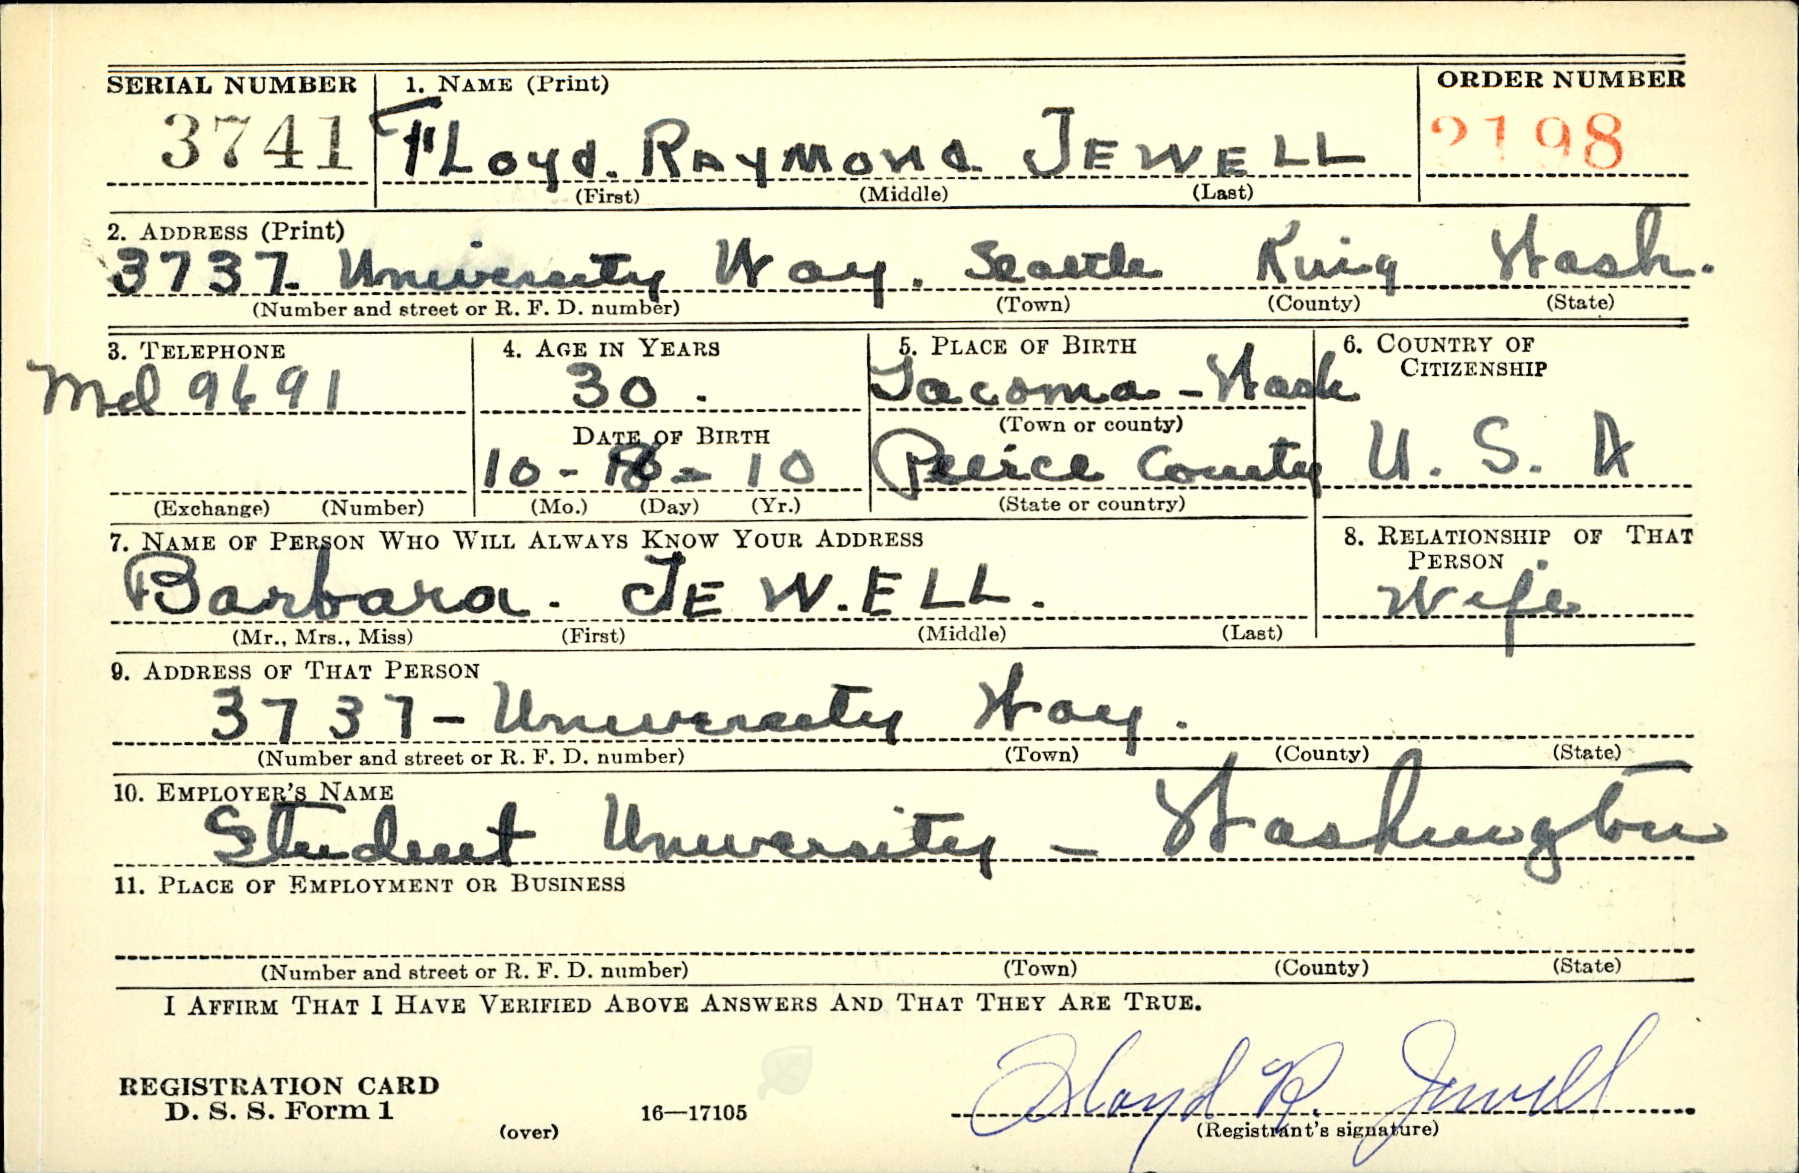 SERIAL NUMBER 1. NAME (Print) ORDER NUMBER
3741 Floyd. RAYMOND JEWELL 2198
(First) (Middle) (Last)
2. ADDRESS (Print)
3737 University Way. Seattle King Wash.
(Number and street or R. F. D. number) (Town) (County) (State)
3. TELEPHONE 4. AGE IN YEARS 5. PLACE OF BIRTH 6. COUNTRY OF CITIZENSHIP
Mel 9691 30. Tacoma - Wash
(Town or county)
DATE OF BIRTH
10 - - 10 Peirce County U. S. A
(Exchange) (Number) (Mo.) (Day) (Yr.) (State or country)
7. NAME OF PERSON WHO WILL ALWAYS KNOW YOUR ADDRESS 8. RELATIONSHIP OF THAT PERSON
Barbara. JEW.ELL. Wife
(Mr., Mrs., Miss) (First) (Middle) (Last)
9. ADDRESS OF THAT PERSON
3737 - University Way.
(Number and street or R. F. D. number) (Town) (County) (State)
10. EMPLOYER'S NAME
Student University - Washington
11. PLACE OF EMPLOYMENT OR BUSINESS
(Number and street or R. F. D. number) (Town) (County) (State)
I AFFIRM THAT I HAVE VERIFIED ABOVE ANSWERS AND THAT THEY ARE TRUE.
REGISTRATION CARD
D. S. S. Form 1 16—17105 Floyd R. Jewell
(over) (Registrant's signature)